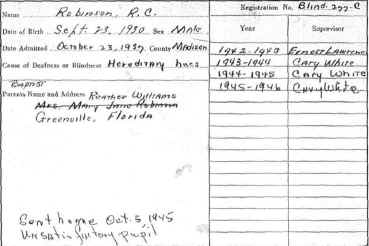 Name Robinson, R.C.
Registration No. Blind 277-C
Date of Birth Sept 23, 1930 Sex Male
Year Supervisor
Date Admitted October 23, 1937 County Madison
1942-1943 Ernest Lawrence
Cause of Deafness or Blindness Hereditary
1943-1944 Cary White
1944-1945 Cary White
Baptist
1945-1946 Cary White
Parents Name and Address Reather Williams
Mrs. Mary Jane Robinson
Greenville, Florida
Sent home Oct. 5, 1945
Unsatisfactory pupil